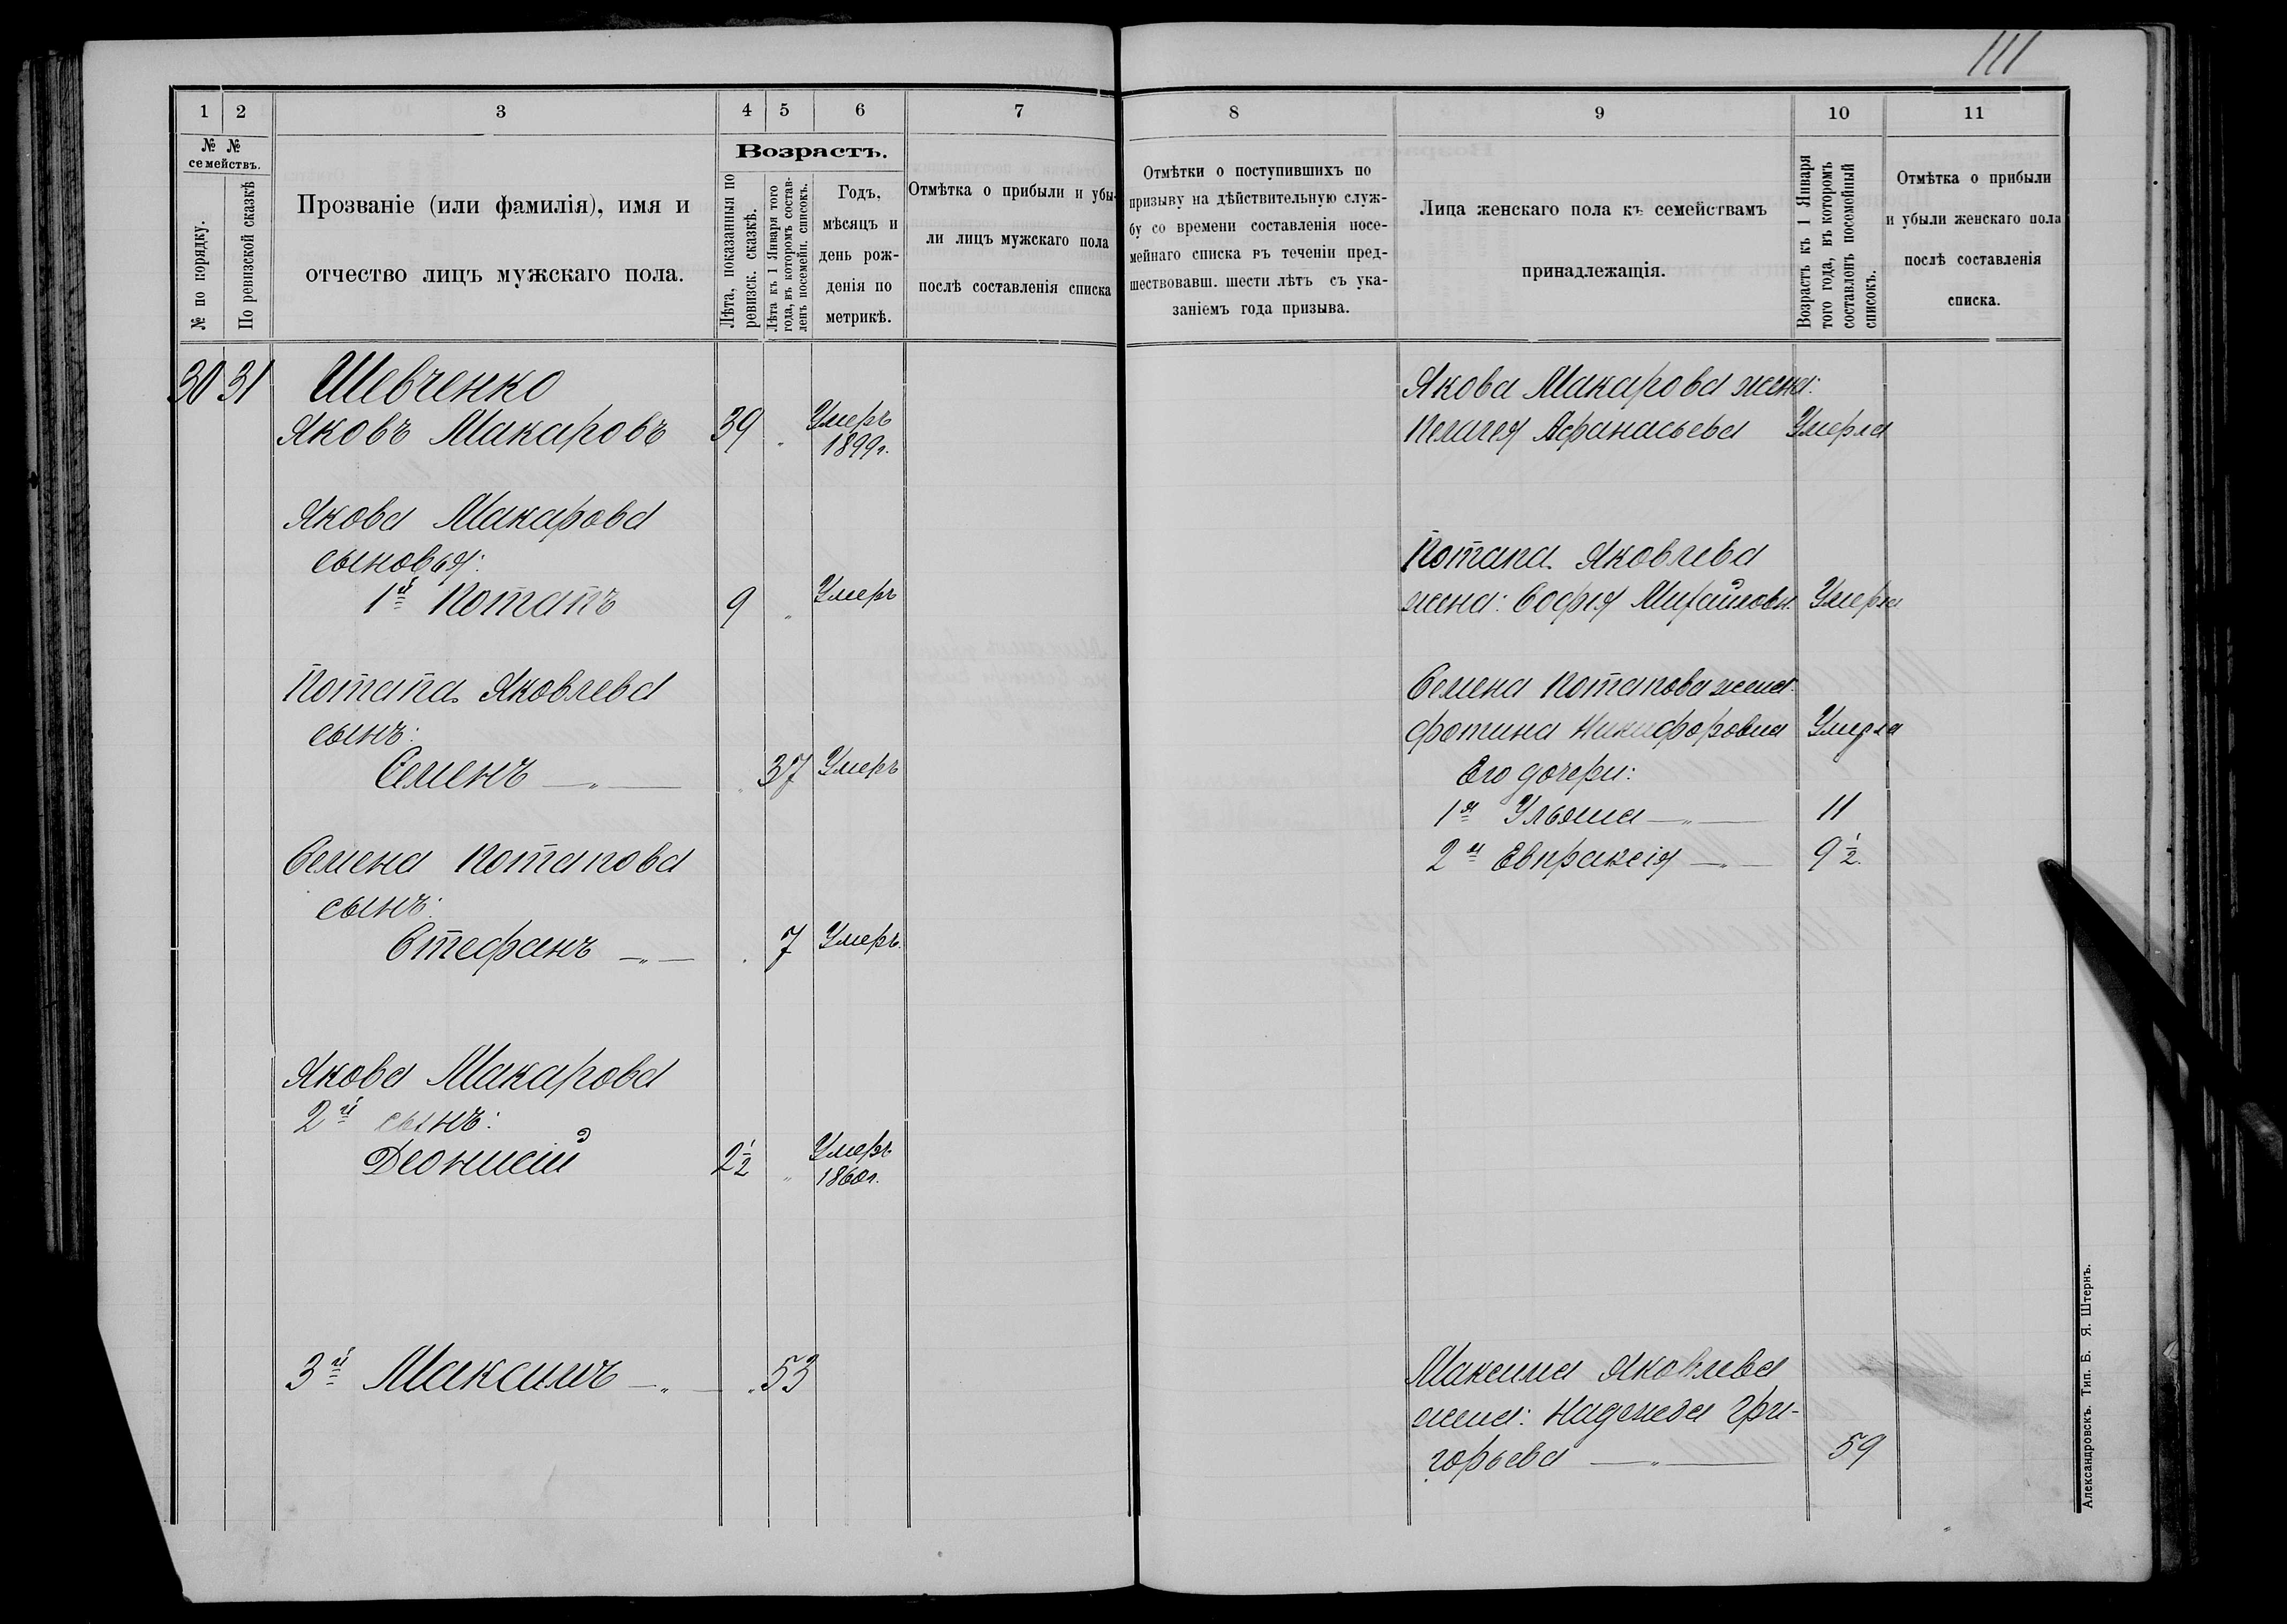 111
1 2 3 4 5 6 7
№ № семействъ.
№ по порядку.
По ревизской сказкѣ
Прозваніе (или фамилія), имя и
отчество лицъ мужскаго пола.
Возрастъ.
Лѣта, показанныя по
ревизск. сказкѣ.
Лѣта къ 1 Января того
года, въ которомъ состав-
ленъ посемейн. списокъ.
Годъ,
мѣсяцъ и
день рож-
денія по
метрикѣ.
Отмѣтка о прибыли и убы-
ли лицъ мужскаго пола
послѣ составленія списка
30 31 Шевченко
Яковъ Макаровъ 39 " Умеръ
1899г.
Якова Макарова
сыновья:
1й Потапъ 9 " Умеръ
Потапа Яковлева
сынъ:
Семенъ —"— " 37 Умеръ
Семена Потапова
сынъ:
Стефанъ —"— " 7 Умеръ.
Якова Макарова
2й сынъ:
Деонисій 2½ " Умеръ
1860г.
3й Максимъ —"— " 53
8 9 10 11
Отмѣтки о поступившихъ по
призыву на дѣйствительную служ-
бу со времени составленія посе-
мейнаго списка въ теченіи пред-
шествовавш. шести лѣтъ съ ука-
заніемъ года призыва.
Лица женскаго пола къ семействамъ
принадлежащія.
Возрастъ къ 1 Января
того года, въ которомъ
составленъ посемейный
списокъ.
Отмѣтка о прибыли
и убыли женскаго пола
послѣ составленія
списка.
Якова Макарова жена:
Пелагея Афанасьева Умерла
Потапа Яковлева
жена: Софія Михайловн. Умерла
Семена Потапова жена
Фотина Никифоровна Умерла
Его дочери:
1я Ульяна —"— 11
2я Евпраксія —"— 9½
Максима Яковлева
жена: Надежда Гри-
горьева —"— 59
Александровскъ. Тип. Б. Я. Штернъ.